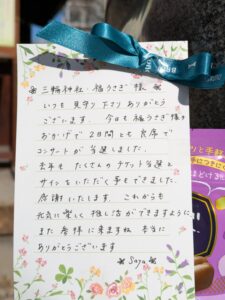 三輪神社 福うさぎ 様
いつも 見守り 下さり ありがとう
ございます。 今日も 福うさぎ 様の
おかげで 2日間 とも 良席で
コンサートが 当選しました。
去年も たくさんの チケット当選と
サインをいただく事もできました。
感謝いたします。 これからも
元気に楽しく 推し活ができますように
また 参拝に来ますね 本当に
ありがとうございます
Saya